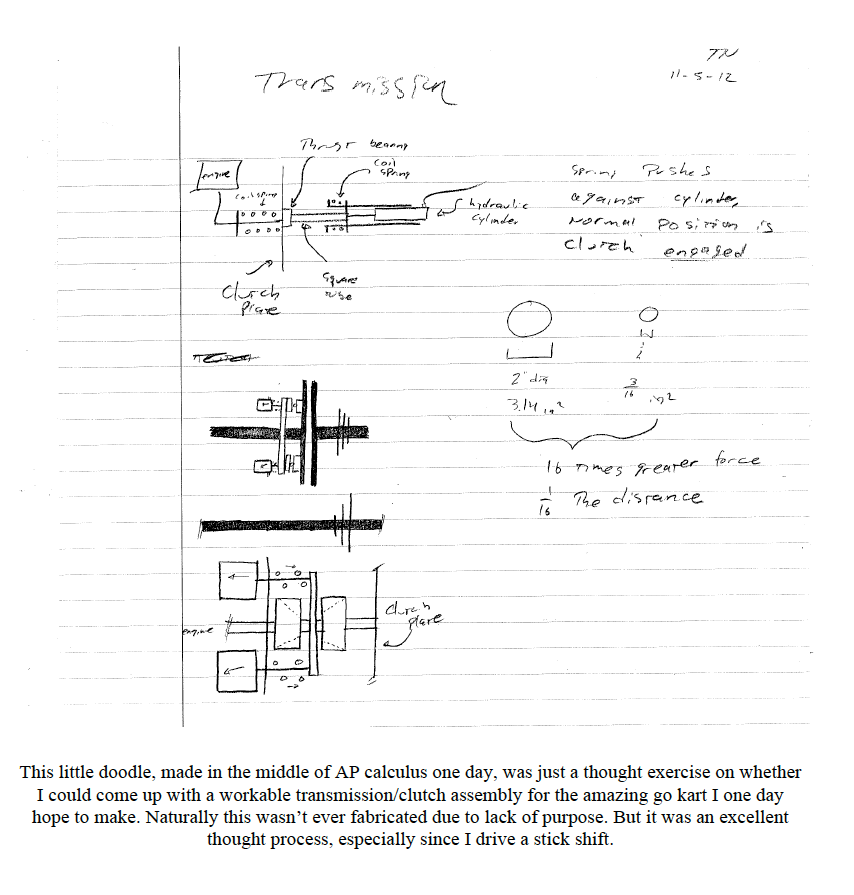 TN
11-5-12
Transmission
Thrust bearing
coil
spring
engine
coil spring
hydraulic
cylinder
Clutch
Plate
Square
tube
Spring Pushes
against cylinder,
normal position is
Clutch engaged
2" dia
3.14 in²
3/16 in²
16 times greater force
1/16 The distance
engine
clutch
plate
This little doodle, made in the middle of AP calculus one day, was just a thought exercise on whether
I could come up with a workable transmission/clutch assembly for the amazing go kart I one day
hope to make. Naturally this wasn't ever fabricated due to lack of purpose. But it was an excellent
thought process, especially since I drive a stick shift.